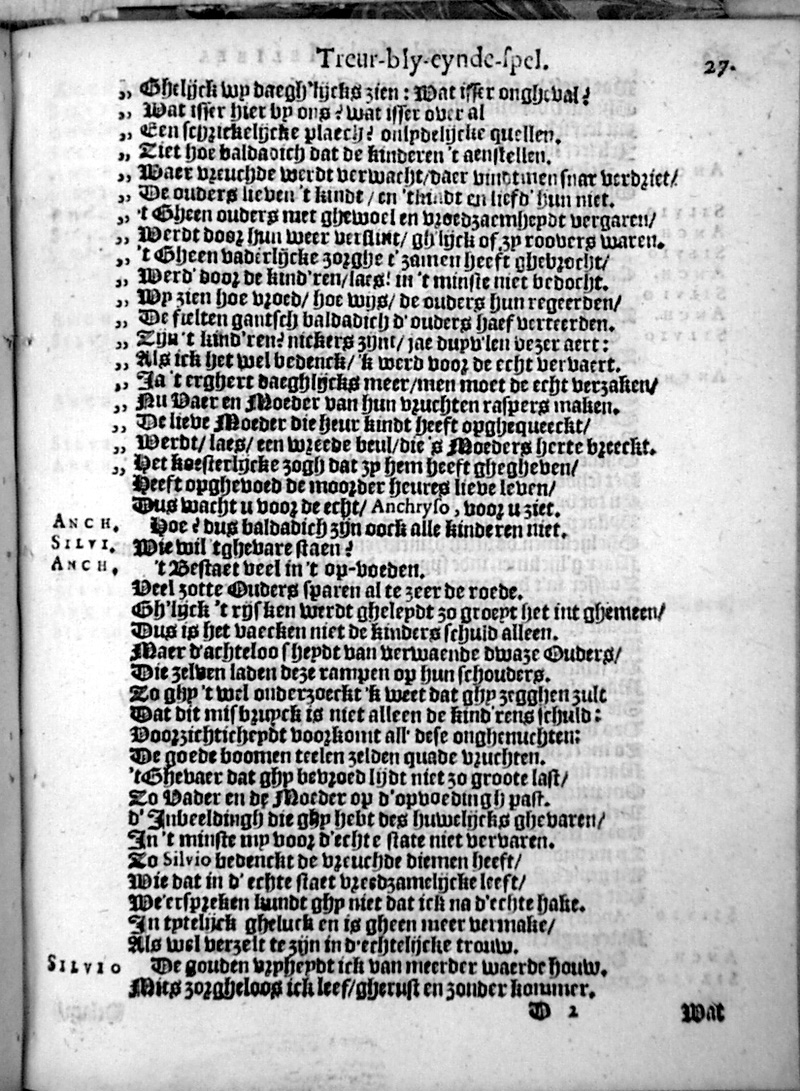 Treur-bly-eynde-spel. 27.
„ Ghelijck wy daegh'lijcks zien: Wat isser ongheval?
„ Wat isser hier by ons? wat isser over al
„ Een schrickelijcke plaech? onlydelijcke quellen.
„ Ziet hoe baldadich dat de kinderen 't aenstellen.
„ Waer vreuchde werdt verwacht/ daer vindtmen snar verdriet/
„ De ouders lieven 't kindt/ en 'tkindt en liefd' hun niet.
„ 't Gheen ouders met ghewoel en vroedzaemheydt vergaren/
„ Werdt door hun weer verslint/ gh'lijck of zy roovers waren.
„ 't Gheen vaderlijcke zorghe t' zamen heeft ghebrocht/
„ Werd' door de kind'ren/ laes! in 't minste niet bedocht.
„ Wy zien hoe vroed/ hoe wijs/ de ouders hun regeerden/
„ De fielten gantsch baldadich d' ouders haef verteerden.
„ Zijn 't kind'ren? nickers zijnt/ jae duyv'len vezer aert:
„ Als ick het wel bedenck/ 'k werd voor de echt vervaert.
„ Ja 't erghert daeghlijcks meer/ men moet de echt verzaken/
„ Nu Vaer en Moeder van hun vruchten raspers maken.
„ De lieve Moeder die heur kindt heeft opghequeeckt/
„ Werdt/ laes/ een wreede beul/ die 's Moeders herte breeckt.
„ Het koesterlijcke zogh dat zy hem heeft ghegheven/
Heeft opghevoed de moorder heures lieve leven/
Dus wacht u voor de echt/ Anchryso, voor u ziet.
ANCH. Hoe? dus baldadich zijn oock alle kinderen niet.
SILVI. Wie wil tghevare staen?
ANCH. 't Bestaet veel in 't op-voeden.
Veel zotte Ouders sparen al te zeer de roede.
Gh'lijck 't rijsken werdt gheleydt zo groeyt het int ghemeen/
Dus is het vaecken niet de kinders schuld alleen.
Maer d'achteloosheydt van verwaende dwaze Ouders/
Die zelven laden deze rampen op hun schouders.
Zo ghy 't wel onderzoeckt 'k weet dat ghy zegghen zult
Dat dit misbruyck is niet alleen de kind'rens schuld:
Voorzichticheydt voorkomt all' dese onghenuchten:
De goede boomen teelen zelden quade vruchten.
'tGhevaer dat ghy bevroed lijdt niet zo groote last/
Zo Vader en de Moeder op d'opvoedingh past.
d' Inbeeldingh die ghy hebt des huwelijcks ghevaren/
In 't minste my voor d'echte state niet vervaren.
Zo Silvio bedenckt de vreuchde diemen heeft/
Wie dat in d' echte staet vreedzamelijcke leeft/
We'erspreken kundt ghy niet dat ick na d'echte hake.
In tytelijck gheluck en is gheen meer vermake/
Als wel verzelt te zijn in d'echtelijcke trouw.
SILVIO De gouden vryheydt ick van meerder waerde houw.
Mits zorgheloos ick leef/ gherust en zonder kommer.
D 2 Wat